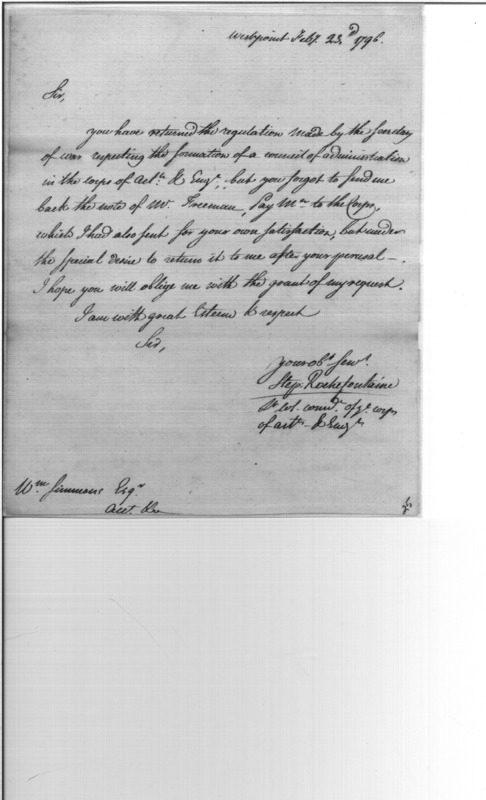 Westpoint Feby. 23d 1796.
Sir,
you have returned the regulation made by the Secretary
of war respecting the formation of a council of administration
in the corps of art. & Engrs., but you forgot to send me
back the note of Mr. Freeman, Pay Mr to the Corps,
which I had also sent for your own satisfaction, but under
the special desire to return it to me after your perusal —.
I hope you will oblige me with the grant of my request.
I am with great Esteem & respect
Sir,
your obt. Servt.
Step. Rochefontaine
Lt. Col. comdt. of ye. corps
of arts. & Engrs
Wm. Simmons Esqr
Acct. &c